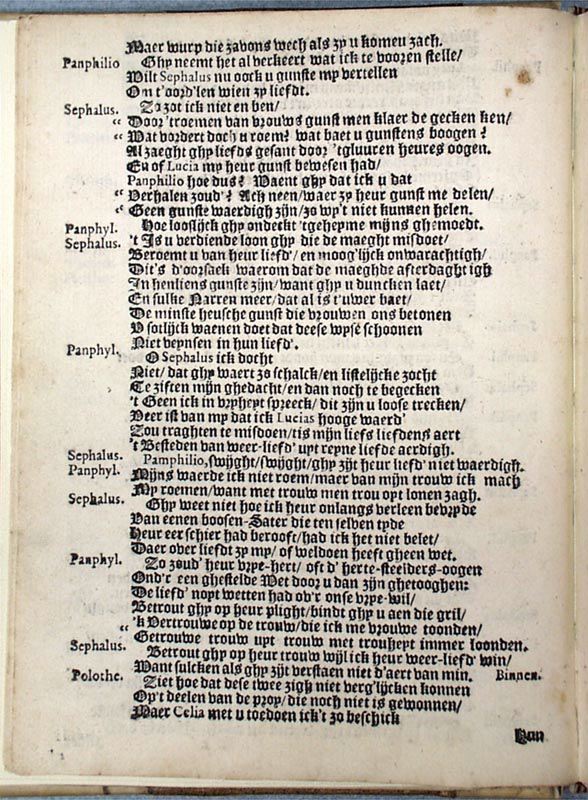 Maer wurp die zavons wech als zy u komen zach.
Panphilio Ghy neemt het al verkeert wat ick te vooren stelle/
Wilt Sephalus nu oock u gunste my vertellen
Om t'oord'len wien zy liefdt.
Sephalus. Zo zot ick niet en ben/
“ Door 'troemen van vrouws gunst men klaer de gecken ken/
“ Wat vordert doch u roem? wat baet u gunstens boogen?
Al zaeght ghy liefds gesant door 'tgluuren heures oogen.
En of Lucia my heur gunst bewesen had/
Panphilio hoe dus? Waent ghy dat ick u dat
“ Verhalen zoud'? Ach neen/waer zy heur gunst me delen/
“ Geen gunste waerdigh zijn/zo wy't niet kunnen helen.
Panphyl. Hoe looslijck ghy ondeckt 'tgeheyme mijns ghemoedt.
Sephalus. 't Is u verdiende loon ghy die de maeght misdoet/
Beroemt u van heur liefd'/en moog'lijck onwarachtigh/
Dit's d'oorsaeck waerom dat de maeghde afterdaght igh
In henliens gunste zijn/want ghy u duncken laet/
En sulke Narren meer/dat al is t'uwer baet/
De minste heusche gunst die vrouwen ons betonen
V sotlijck waenen doet dat deese wyse schoonen
Niet peynsen in hun liefd'.
Panphyl. O Sephalus ick docht
Niet/dat ghy waert zo schalck/en listelijcke zocht
Te ziften mijn ghedacht/en dan noch te begecken
't Geen ick in vryheyt spreeck/dit zijn u loose trecken/
Veer ist van my dat ick Lucias hooge waerd'
Zou traghten te misdoen/tis mijn liefs liefdens aert
't Besteden van weer-liefd' uyt reyne liefde aerdigh.
Sephalus. Pamphilio, swijght/swijght/ghy zijt heur liefd' niet waerdigh.
Panphyl. Mijns waerde ick niet roem/maer van mijn trouw ick mach
My roemen/want met trouw men trou opt lonen zagh.
Sephalus. Ghy weet niet hoe ick heur onlangs verleen bevryde
Van eenen boosen-Sater die ten selven tyde
Heur eer schier had berooft/had ick het niet belet/
Daer over liefdt zy my/of weldoen heeft gheen wet.
Panphyl. Zo zoud' heur vrye-hert/oft d'herte-steelders-oogen
Ond'r een ghestelde Wet door u dan zijn ghetooghen:
De liefd' noyt wetten had ov'r onse vrye-wil/
Betrout ghy op heur plight/bindt ghy u aen die gril/
'k Vertrouwe op de trouw/die ick me vrouwe toonden/
“ Getrouwe trouw upt trouw met trouheyt immer loonden.
Sephalus. Betrout ghy op heur trouw wijl ick heur weer-liefd' win/
Want sulcken als ghy zijt verstaen niet d'aert van min. Binnen.
Polothe. Ziet hoe dat dese twee zigh niet verg'lijcken konnen
Op't deelen van de proy/die noch niet is gewonnen/
Maer Celia met u toedoen ick't zo beschick
Van